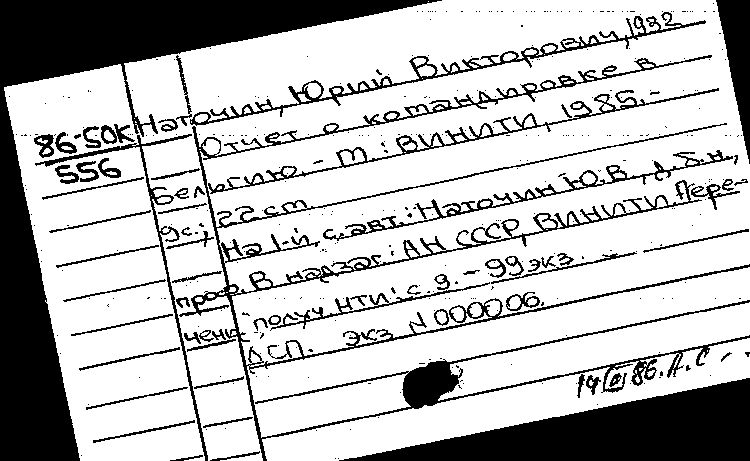 86-50К
556
Наточин, Юрий Викторович, 1932
Отчет о командировке в
Бельгию. - М : ВИНИТИ, 1985. -
9с.; 22 см.
На 1-й с. авт.: Наточин Ю.В., д.б.н.,
проф. В надзаг.: АН СССР, ВИНИТИ. Пере-
чень получ. НТИ: с. 9. - 99 экз.
ДСП. Экз N 000006.
86. А.С